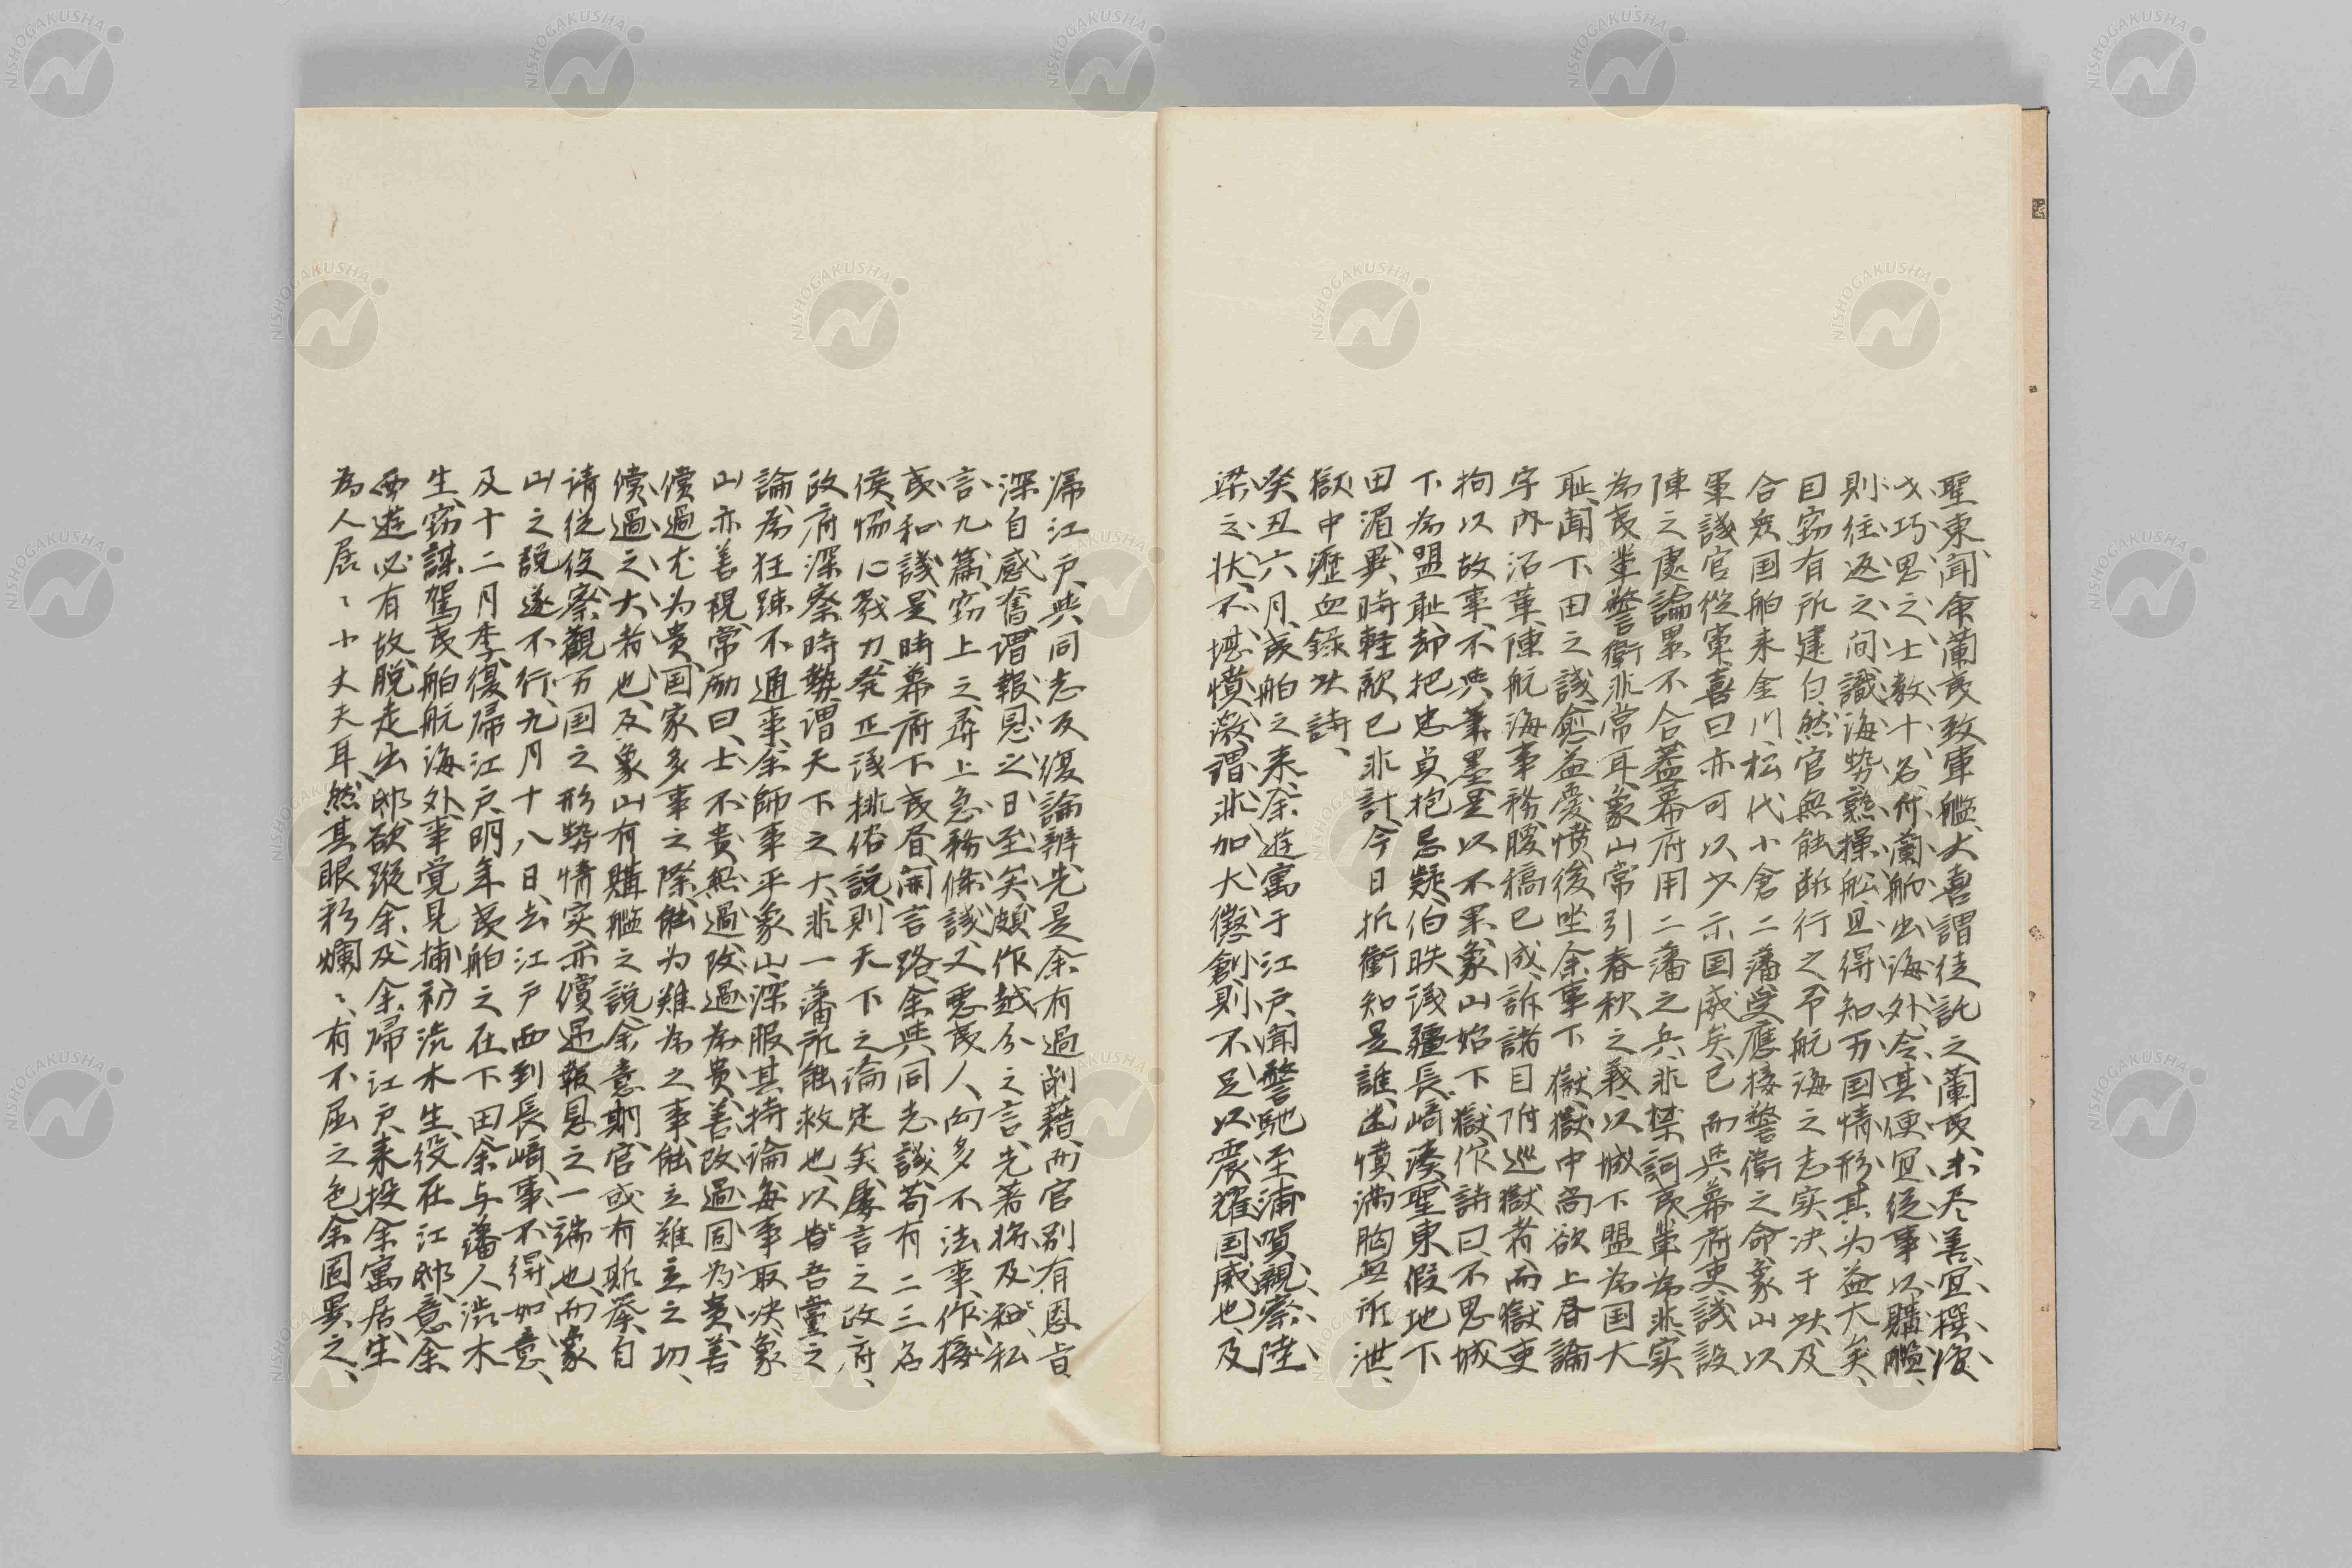 聖東聞命蘭夷致軍艦大喜謂徒託之蘭夷未尽善宜撰俊
才巧思之士数十名付蘭舶出海外令其便宜従事以購艦
則往返之間識海勢熟操舩且得知万国情形其為益大矣
因窃有所建白然官無能断行之予航海之志実决于此及
合衆国舶来金川松代小倉二藩受應接警衛之命象山以
軍議官從軍喜曰亦可以少示国威矣已而與幕府吏議設
陳之處論累不合蓋幕府用二藩之兵非禁訶夷輩為非実
為夷輩警衛非常耳象山常引春秋之義以城下盟為国大
耻聞下田之議愈益憂憤後坐余事下獄獄中尚欲上昏論
字内沿革陳航海事務腹稿已成訴諸目附巡獄者而獄吏
拘以故事不與筆墨是以不果象山始下獄作詩曰不思城
下為盟耻却把忠貞抱忌疑伯昳議疆長﨑湊聖東假地下
田湄異時軽敵已非計今日折衝知是誰逆憤満胸無所泄
獄中瀝血録此詩
癸丑六月夷舶之来余遊寓于江戸聞警馳至浦賀親察陸
梁之状不堪憤激謂非加大懲創則不足以震耀国威也及
帰江戸與同志反復論辨先是余有過削藉而官別有恩旨
深自感奮謂報恩之日至矣頗作越分之言先著将及私私
言九篇窃上之尋上急務條議又悪夷人向多不法事作接
夷和議是時幕府下夷昏開言路余與同志議苟有二三名
侯恊心戮力発正議排俗說則天下之論定矣屡言之政府
政府深察時勢謂天下之大非一藩所能救也以皆吾黨之
論為狂踈不通事余師事平象山深服其持論每事取决象
山亦善視常励曰士不貴無過改過為貴善改過固為貴善
償過尤为貴国家多事之際能为難為之事能立難立之功
償過之大者也及象山有購艦之說余意期官或有斯擧自
请従役察觀万国之形勢情实亦償過報恩之一端也而象
山之說遂不行九月十八日去江戸西到長﨑事不得如意
及十二月季復帰江戸明年夷舶之在下田余与藩人澁木
生窃謀駕夷舶航海外事覚見捕初渋木生役在江邸意余
西遊必有故脱走出邸欲蹤余及余帰江戸来投余寓居生
為人居〻小丈夫耳然其眼彩爛〻有不屈之色余固異之